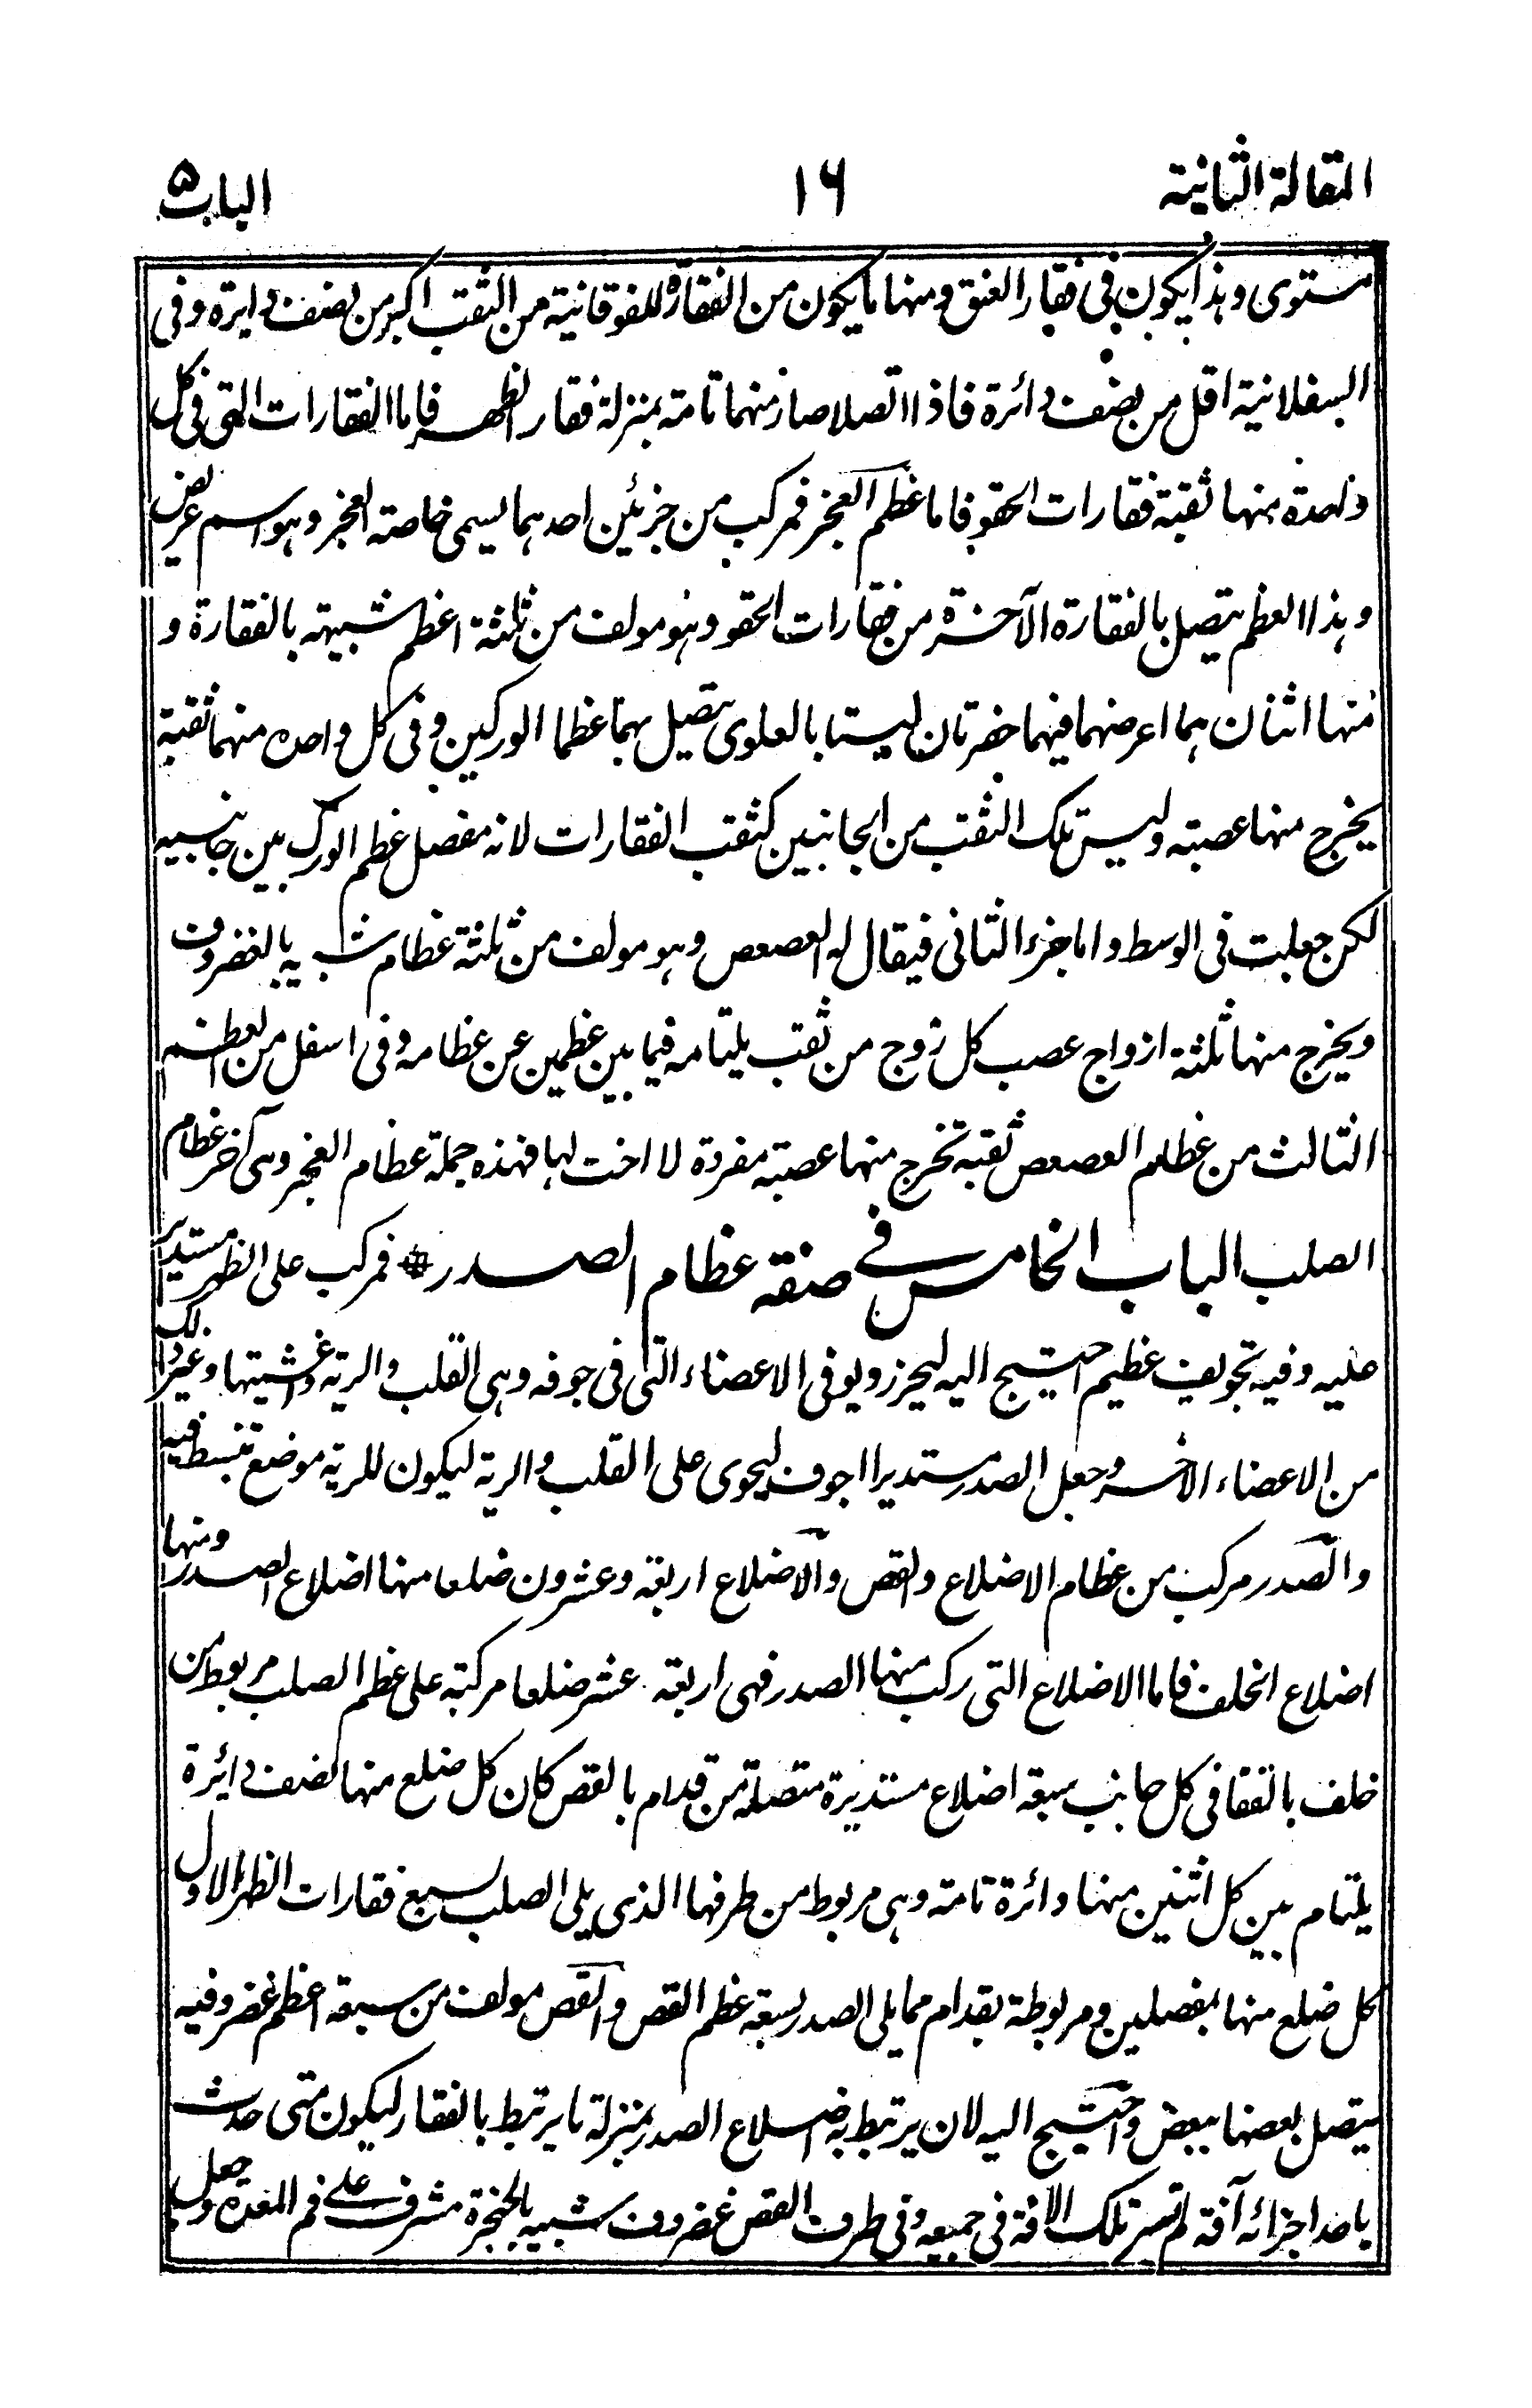 المقالة الثانية
١٦
الباب ٥
مستوى وهذا يكون فى فقار العنق ومنها ما يكون من الفقارة للفوقانية من الثقب اكبر من نصف دايرة وفى
السفلانية اقل من نصف دائرة فاذا اتصلا صار منهما تامة بمنزلة فقار الظهر فاما الفقارات التى فى كل
واحدة منها ثقبة فقارات الحقو فاما عظم العجز فمركب من جزئين احدهما يسمى خاصة العجز وهو اسم عريض
وهذا العظم يتصل بالفقارة الآخرة من فقارات الحقو وهو مولف من ثلثة اعظم شبيهة بالفقارة و
منها اثنان هما اعرضهما فيهما حفرتان ليستا بالعلوى يتصل بهما عظما الوركين وفى كل واحده منهما ثقبة
يخرج منها عصبته وليس تلك الثقب من الجانبين كثقب الفقارات لانه مفصل عظم الورك بين جانبيه
لكن جعلت فى الوسط واما جزء الثانى فيقال له العصعص وهو مولف من ثلثة عظام شبيه بالغضروف
ويخرج منها ثلثة ازواج عصب كل زوج من ثقب يلتامه فيما بين عظمين عن عظامه وفى اسفل من العظم
الثالث من عظام العصعص ثقبة تخرج منها عصبته مفردة لا اخت لها فهذه جملة عظام العجز وهى آخر عظام
الصلب الباب الخامس في صفة عظام الصدر فمركب على الظهر مستدير
عليه وفيه تجويف عظيم احتيج اليه ليحرز ويوفى الاعضاء التى فى جوفه وهى القلب والرية واغشيتها وغير ذلك
من الاعضاء الاخر وجعل الصدر مستديرا اجوف ليحوى على القلب والرية ليكون للرية موضع تنبسط فيه
والصدر مركب من عظام الاضلاع والقص والاضلاع اربعة وعشرون ضلعا منها اضلاع الصدر ومنها
اضلاع الخلف فاما الاضلاع التى ركب منها الصدر فهى اربعة عشر ضلعا مركبة على عظم الصلب مربوط من
خلف بالفقا فى كل جانب سبعة اضلاع مستديرة متصلة من قدام بالقص كان كل ضلع منها نصف دائرة
يلتام بين كل اثنين منها دائرة تامة وهى مربوط من طرفها الذى يلى الصلب بسبع فقارات الظهر الاول
كل ضلع منها بمفصلين ومربوطة بقدام مما يلى الصدر بسبعة عظم القص والقص مولف من سبعة اعظم غضروفيه
يتصل بعضها ببعض واحتيج اليه لان يرتبط به اضلاع الصدر بمنزلة ما يرتبط بالفقار ليكون متى حدث
باحد اجزائه آفة لم تسر تلك الافة فى جميعه وفى طرف القص غضروف شبيه بالخنجرة مشرف على فم المعدة وجعل